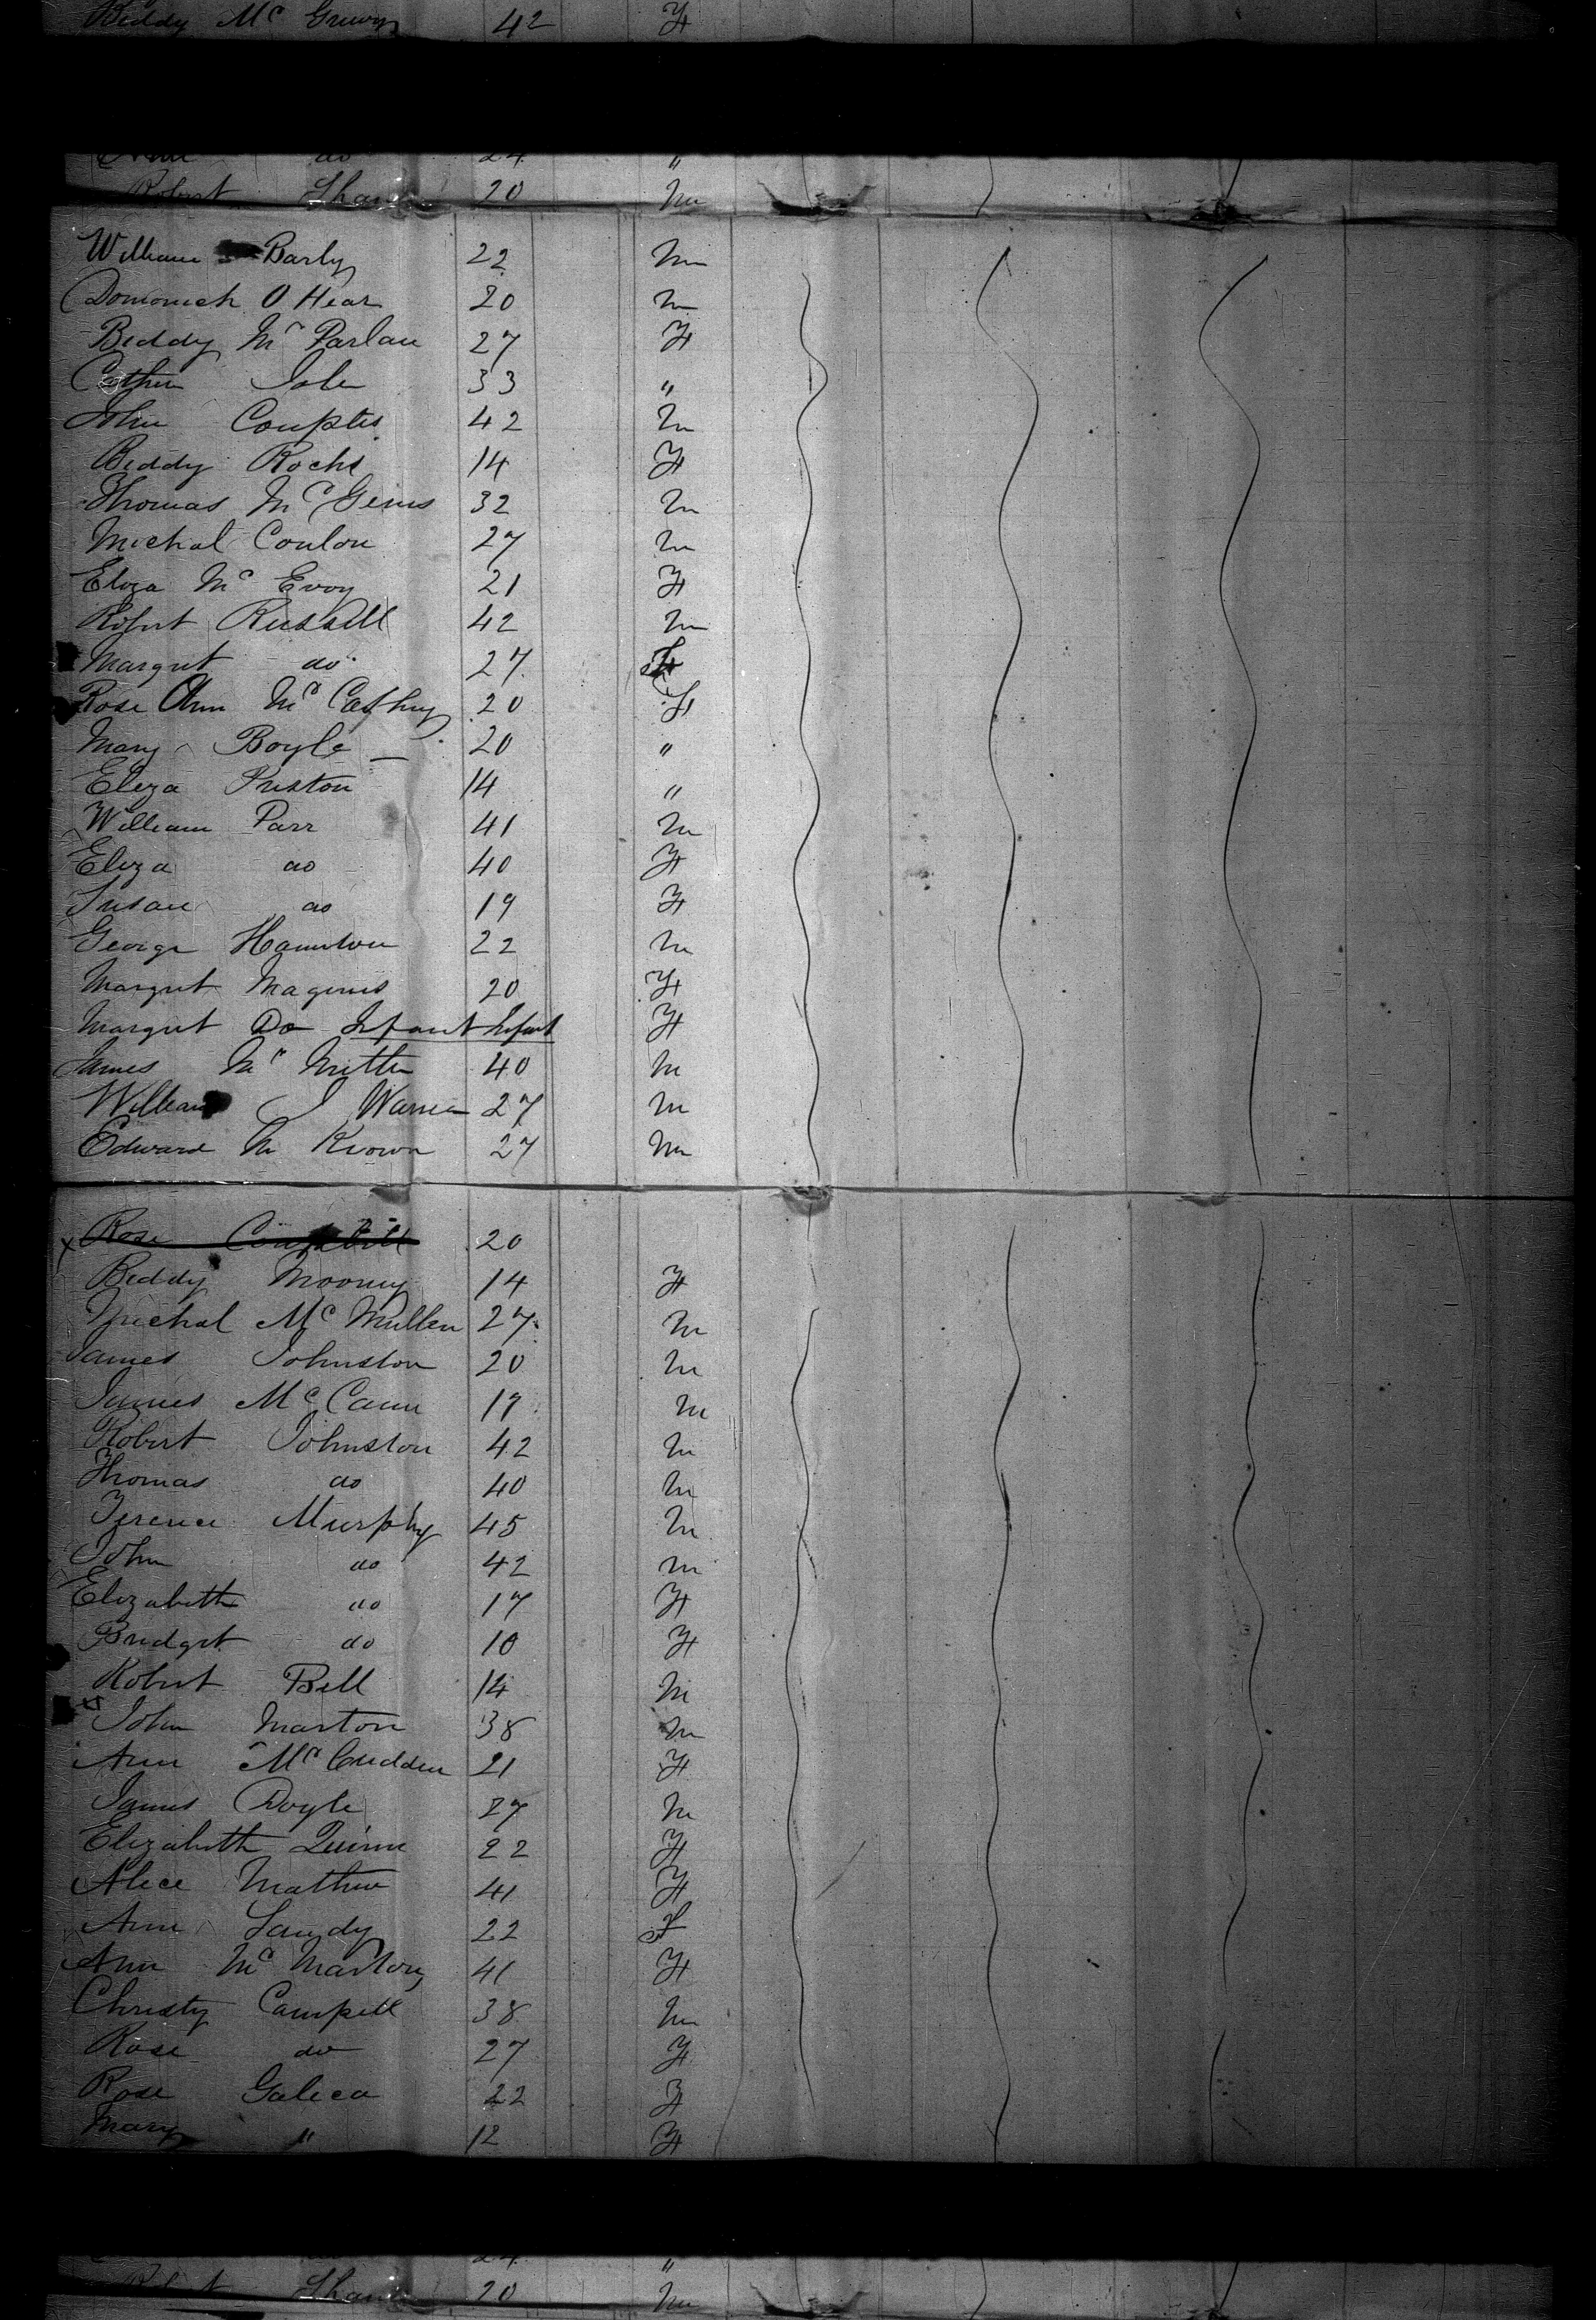 Biddy Mc 42 F
do 24 "
Robert Shan 20 M
William Barly 22 M
Domonick O Hear 20 M
Biddy Mc Parlan 27 F
33 "
John 42 M
Biddy Rochs 14 F
Thomas Mc Genis 32 M
Michal Conlon 27 M
Eliza Mc Evoy 21 F
Robert Russell 42 M
Margret do 27 F
Rose Ann Mc Cafhny 20 F
Mary Boyle 20 "
Eliza Preston 14 "
William Parr 41 M
Eliza do 40 F
Susan do 19 F
George Hamilton 22 M
Margret Maginis 20 F
Margret Do Infant Infant F
James Mc 40 M
William J Warren 27 M
Edward Mc Kiown 27 M
Rose 20
Biddy Mooney 14 F
Michal Mc Mullen 27 M
James Johnston 20 M
James Mc Cann 19 M
Robert Johnston 42 M
Thomas do 40 M
Terence Murphy 45 M
John do 42 M
Elizabeth do 17 F
Bridget do 10 F
Robert Bell 14 M
John Marton 38 M
Ann Mc Cudden 21 F
James Doyle 27 M
Elizabeth Quinn 22 F
Alice Mathew 41 F
Ann Sandy 22 F
Ann Mc 41 F
Christy Campell 38 M
Rose do 27 F
Rose Galeca 22 F
Mary " 12 F
24 "
Shan 20 M